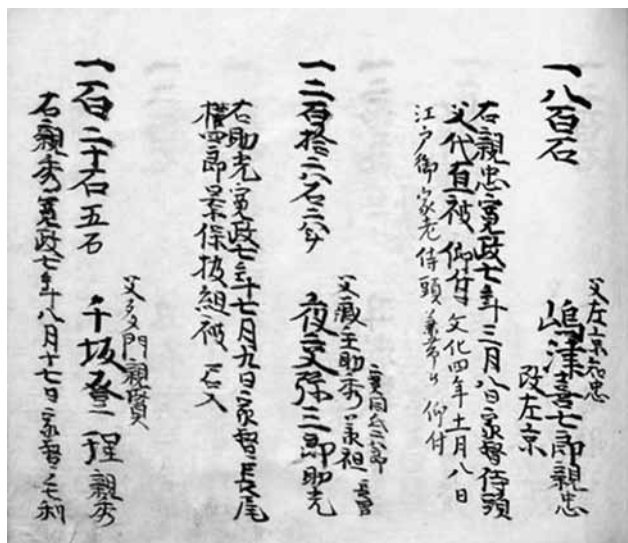 一八百石
父左京知忠
嶋津喜七郎親忠
改左京
右親忠寛政七年三月八日家督侍頭
父代直被 仰付 文化四年十一月八日
江戸御家老侍頭兼帯被 仰付
一二百拾六石二合
父蔵主助秀
夜交弥三郎助光
右助光寛政七年七月九日家督長尾
権四郎景保扱組被 召入
一百二十石五石
父多門親賢
千坂登理親秀
右親秀寛政七年八月十七日家督毛利